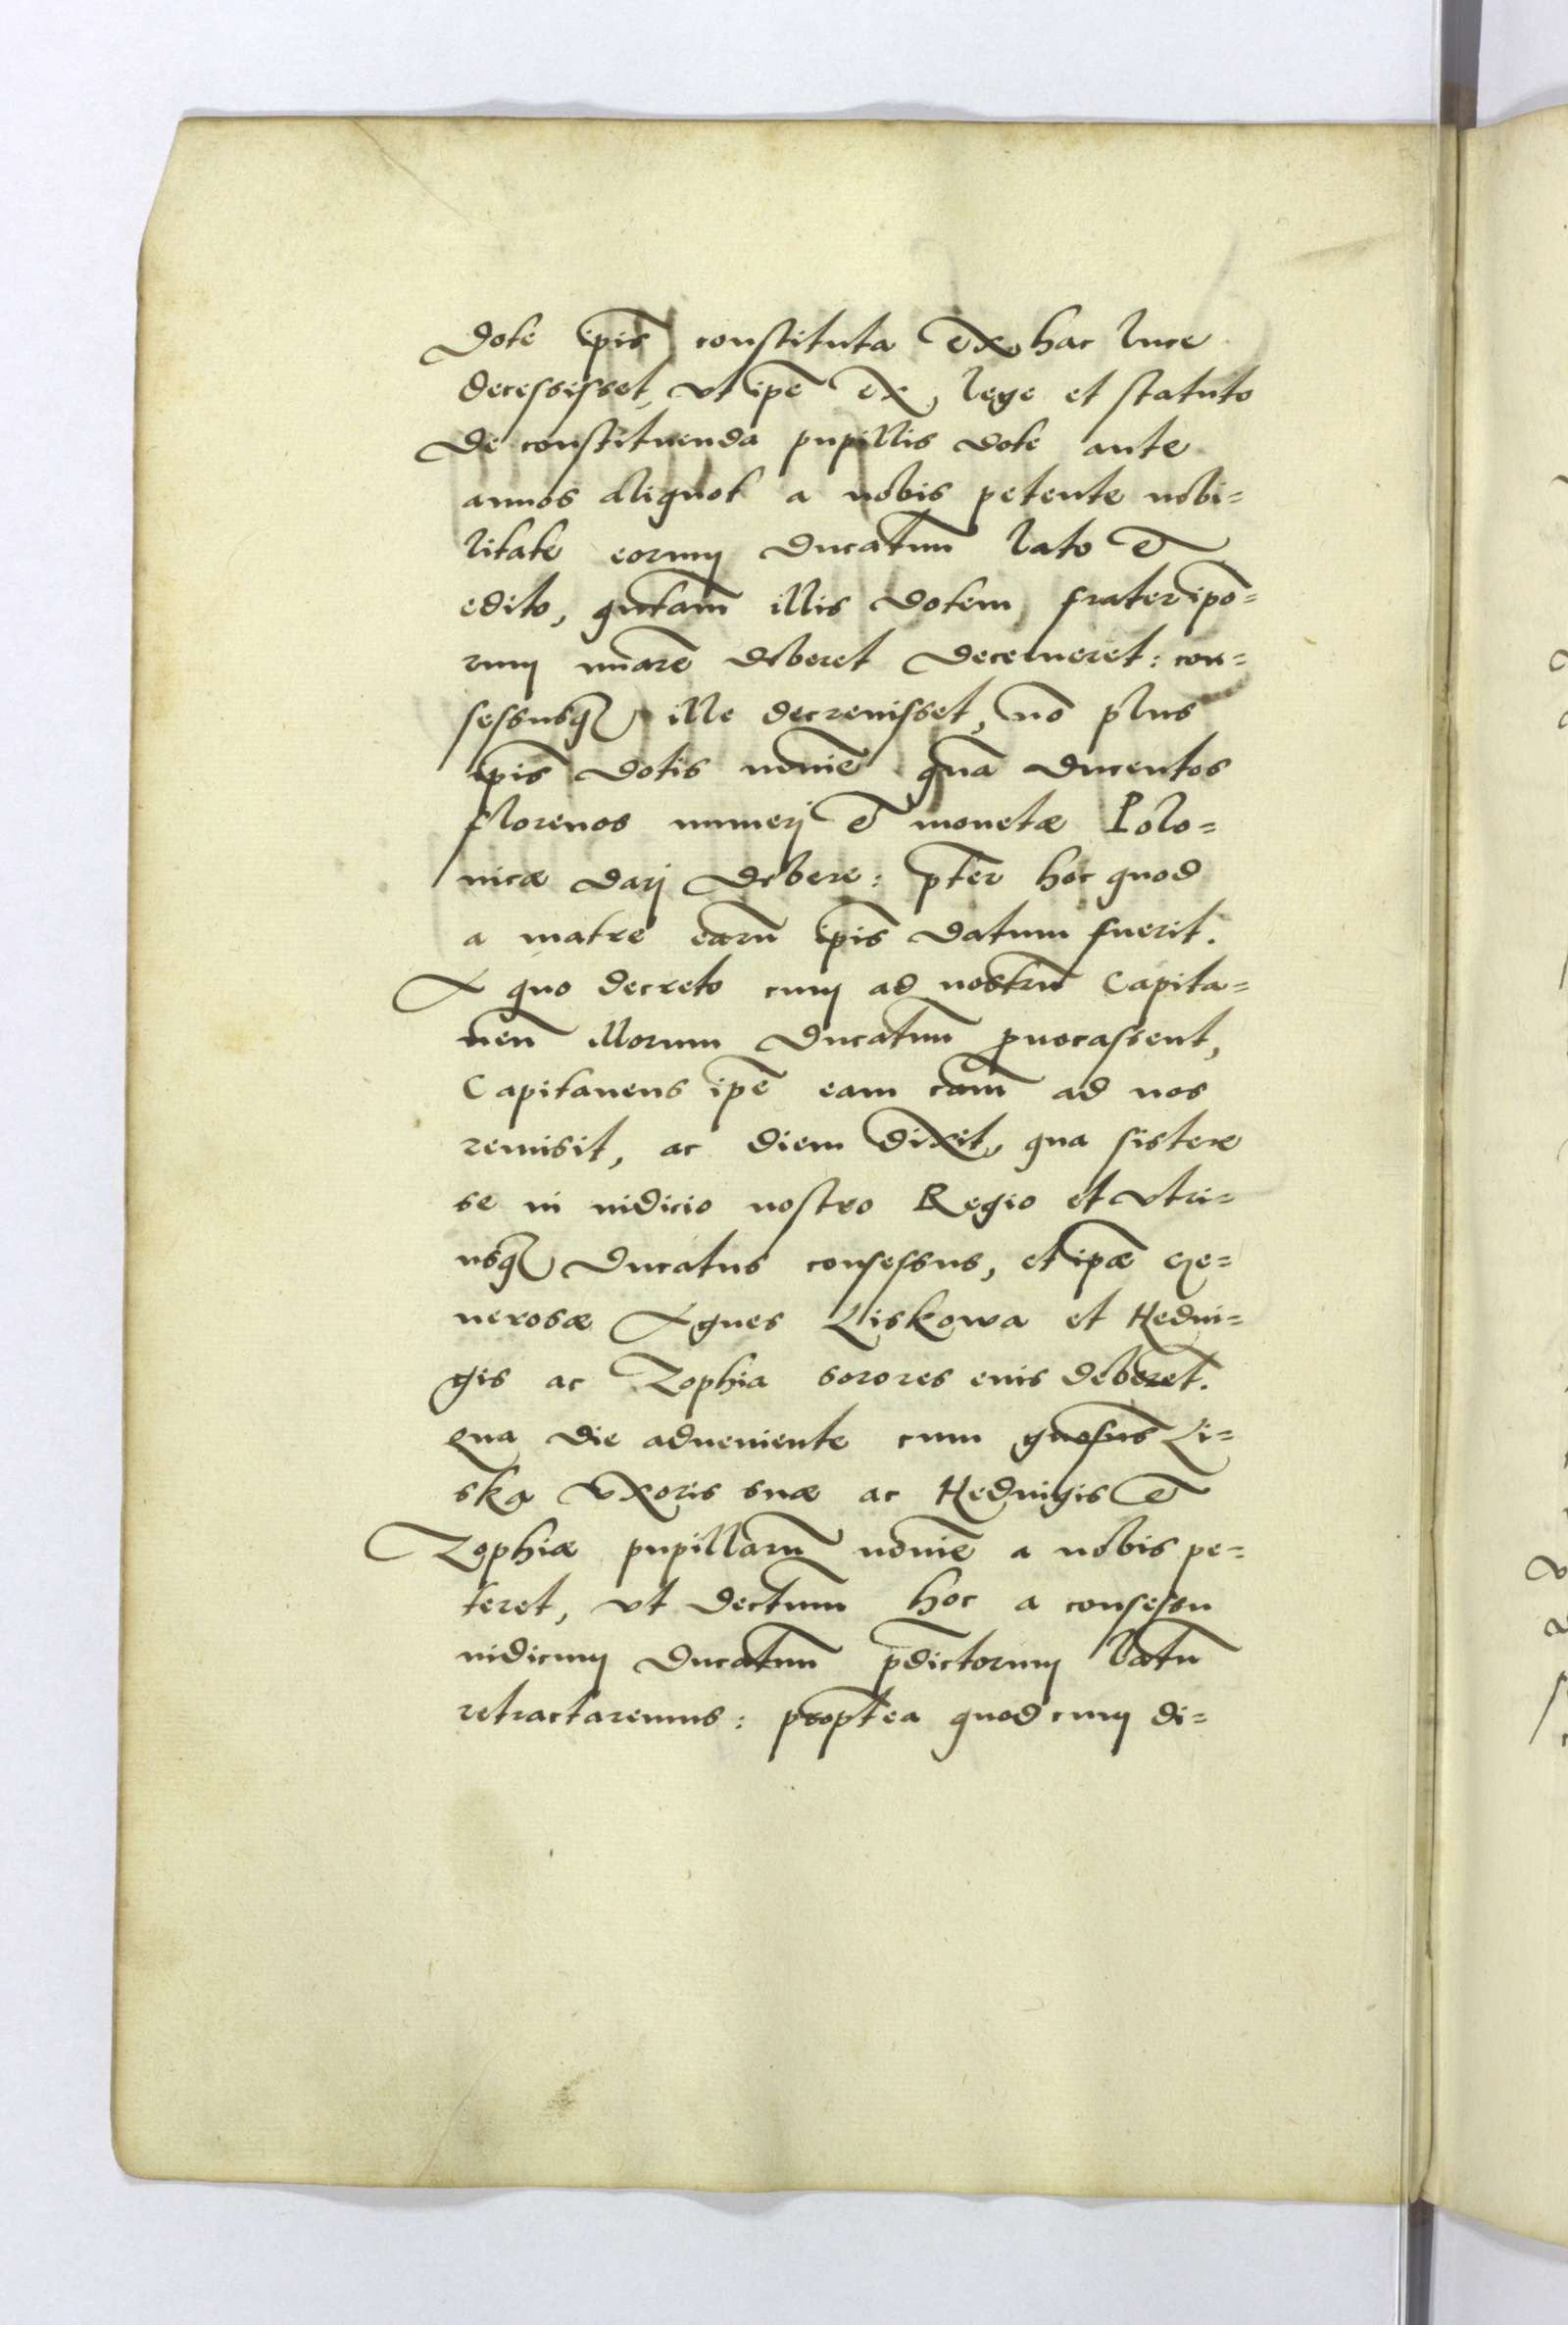 dote ip̃is constituta ex hac luce
decessisset, vt ip̃e ex lege et statuto
de constituenda pupillis dote ante
annos aliquot a nobis petente nobi=
litate eorum ducatuũ lato et
edito, qntam̃ illis dotem frater ip̃o=
rum nũare deberet decerneret: con=
sessusq̃ ille decreuisset, nõ plus
ip̃is dotis noĩe quã ducentos
florenos numeri et monetæ Polo=
nicæ dari debere: p̃ter hoc quod
a matre earũ ip̃is datum fuerit.
A quo decreto cum ad nostrũ Capita=
neũ illorum ducatuũ ꝓuocassent,
Capitaneus ip̃e eam cam̃ ad nos
remisit, ac diem dixit, qua sistere
se in iudicio nostro Regio et vtri=
usq̃ ducatus consessus, et ip̃æ Ge=
nerosæ Agnes Liskowa et Hedui=
gis ac Zophia sorores eius deberet̃.
Qua die adueniente cum gnosus̃ Li=
ska vxoris suæ ac Heduigis et
Zophiæ pupillarũ noĩe a nobis pe=
teret, vt dectum̃ hoc a consessu
iudicum ducatuũ p̃dictorum latũ
retractaremus: propt̃ea quod cum di=